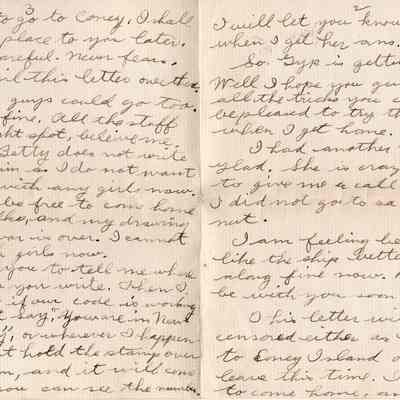 3
to go to Coney. I shall
place to you later.
careful. Never fear.
this letter over the
guys could go too.
fine. All the stuff
spot, believe me.
Betty does not write
in. I do not want
with any girls now.
be free to come home
and my drawing
war is over. I cannot
girls now.
you to tell me what
you write. Then I
if our code is working
say, "You are in New
", or wherever I happen
hold the stamp over
and it will come
you can see the
2
I will let you know
when I get her ans.
So Gyp is getting
Well I hope you
all the tricks you
be pleased to try
when I get home.
I had another
glad. She is crazy
to give me a call
I did not go to
nut.
I am feeling
like the ship better
along fine now.
be with you soon
This letter
censored either as
to Coney Island
leave this time. I
to come home,